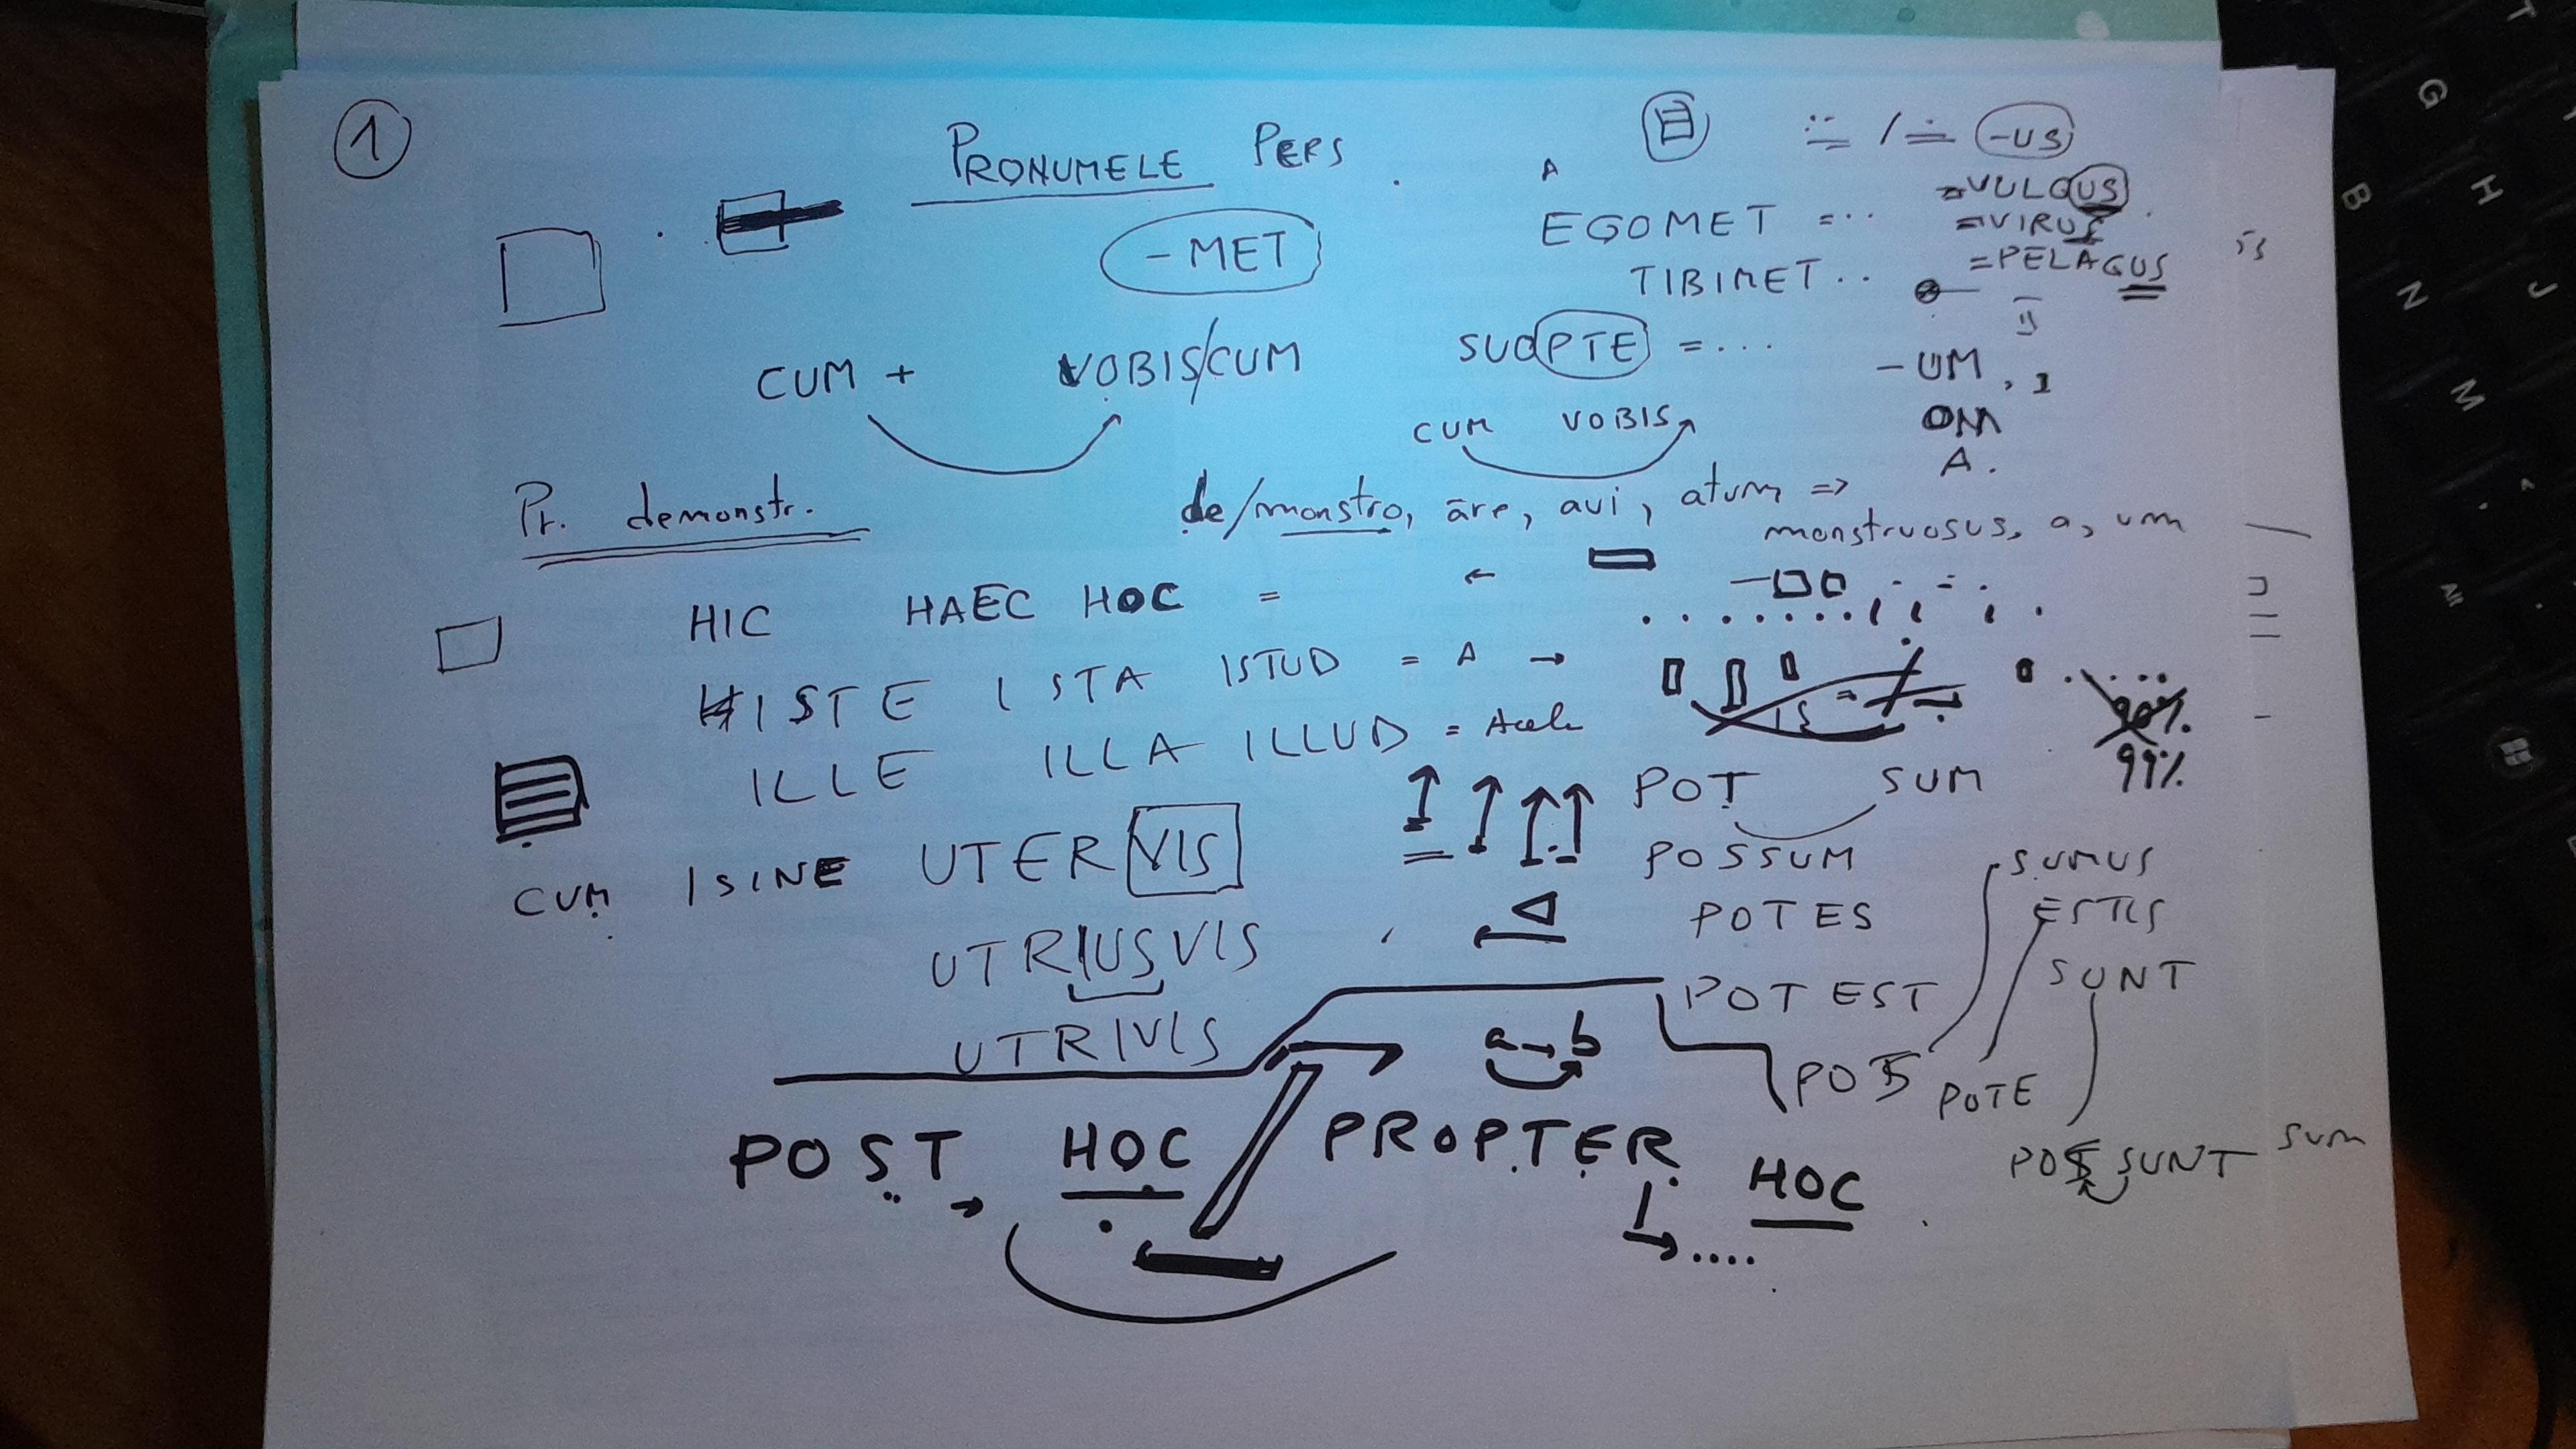 1
PRONUMELE PERS
-US
=VULGUS
- MET
EGOMET = ..
=VIRUS
=PELAGUS
TIBIMET ..
CUM + VOBIS/CUM
SUOPTE = ...
- UM, I
CUM VOBIS
OM
A.
Pr. demonstr.
de/monstro, āre, avi, atum =>
monstruosus, a, um
HIC HAEC HOC =
HISTE ISTA ISTUD = A →
IS
90%
99%
ILLE ILLA ILLUD =
POT SUM
CUM / SINE UTERVIS
POSSUM
SUMUS
POTES
ESTIS
UTRIUSVIS
SUNT
POTEST
UTRIVIS
a→b
POTE
POST HOC PROPTER HOC
SUNT SUM
G
H
B
J
N
M
Alt